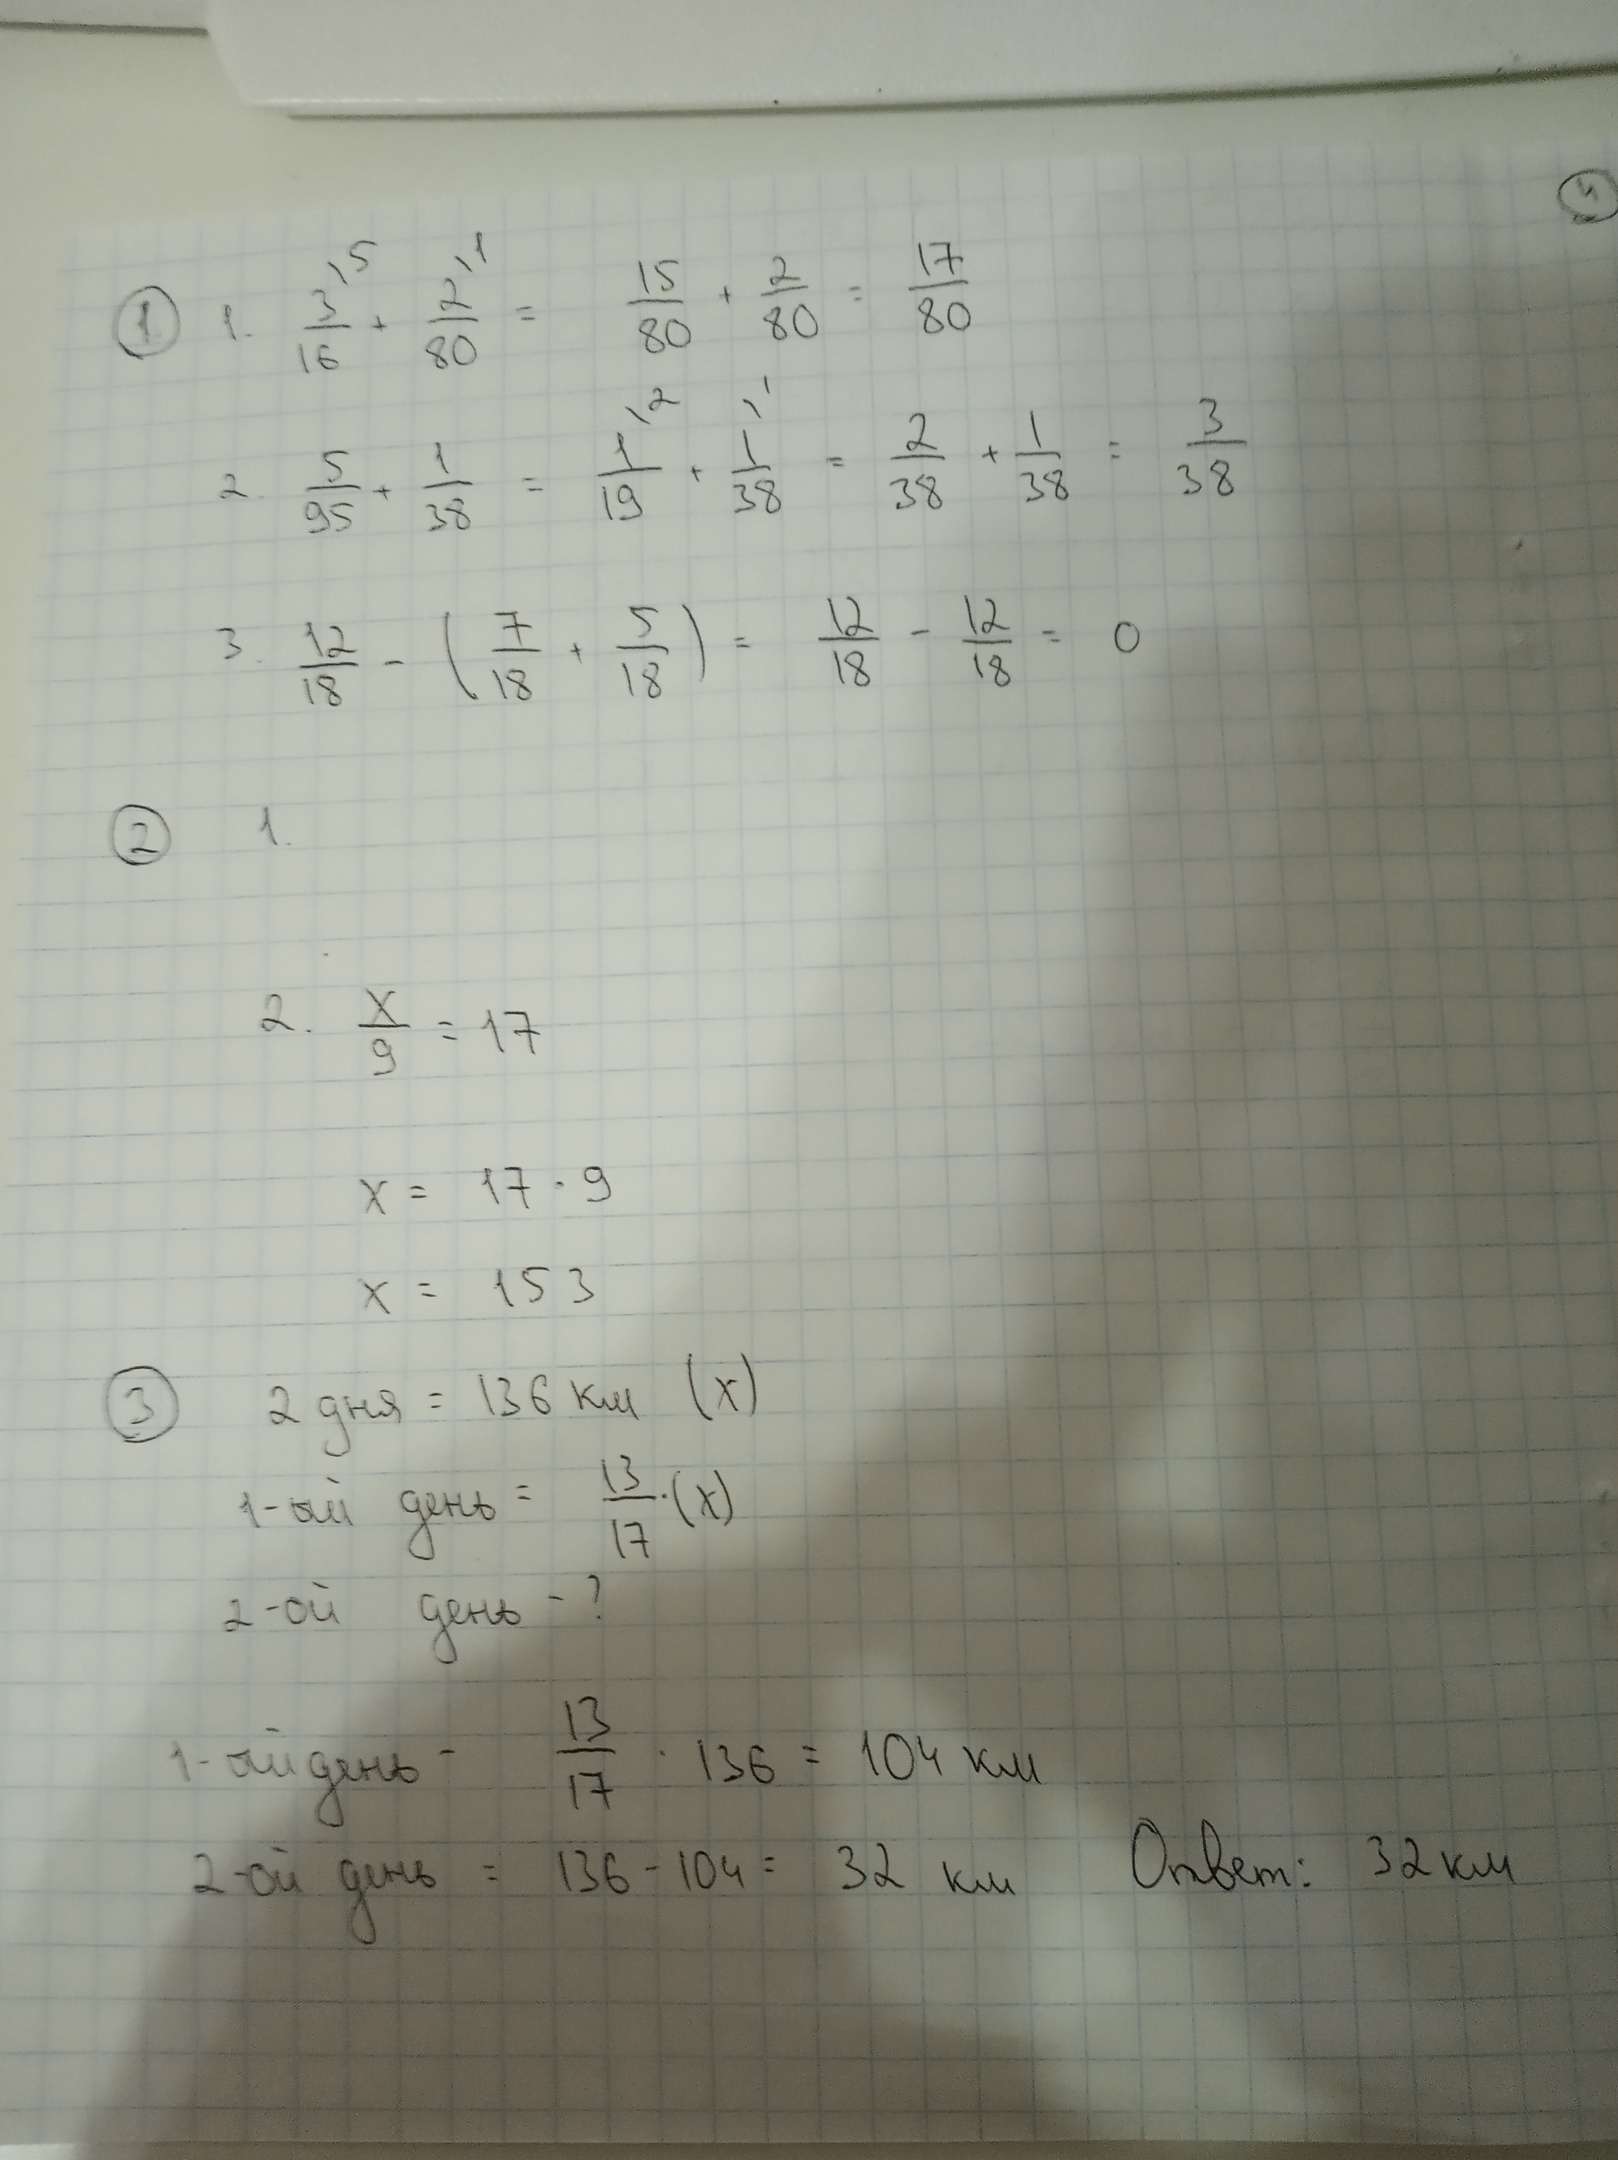 ④
① 1. 3/16 ⟍5 + 2/80 ⟍1 = 15/80 + 2/80 = 17/80
2. 5/95 + 1/38 = 1/19 ⟍2 + 1/38 ⟍1 = 2/38 + 1/38 = 3/38
3. 12/18 - (7/18 + 5/18) = 12/18 - 12/18 = 0
② 1.
2. x/9 = 17
x = 17 · 9
x = 153
③ 2 дня = 136 км (x)
1-ый день = 13/17 · (x)
2-ой день - ?
1-ый день - 13/17 · 136 = 104 км
2-ой день = 136 - 104 = 32 км Ответ: 32 км